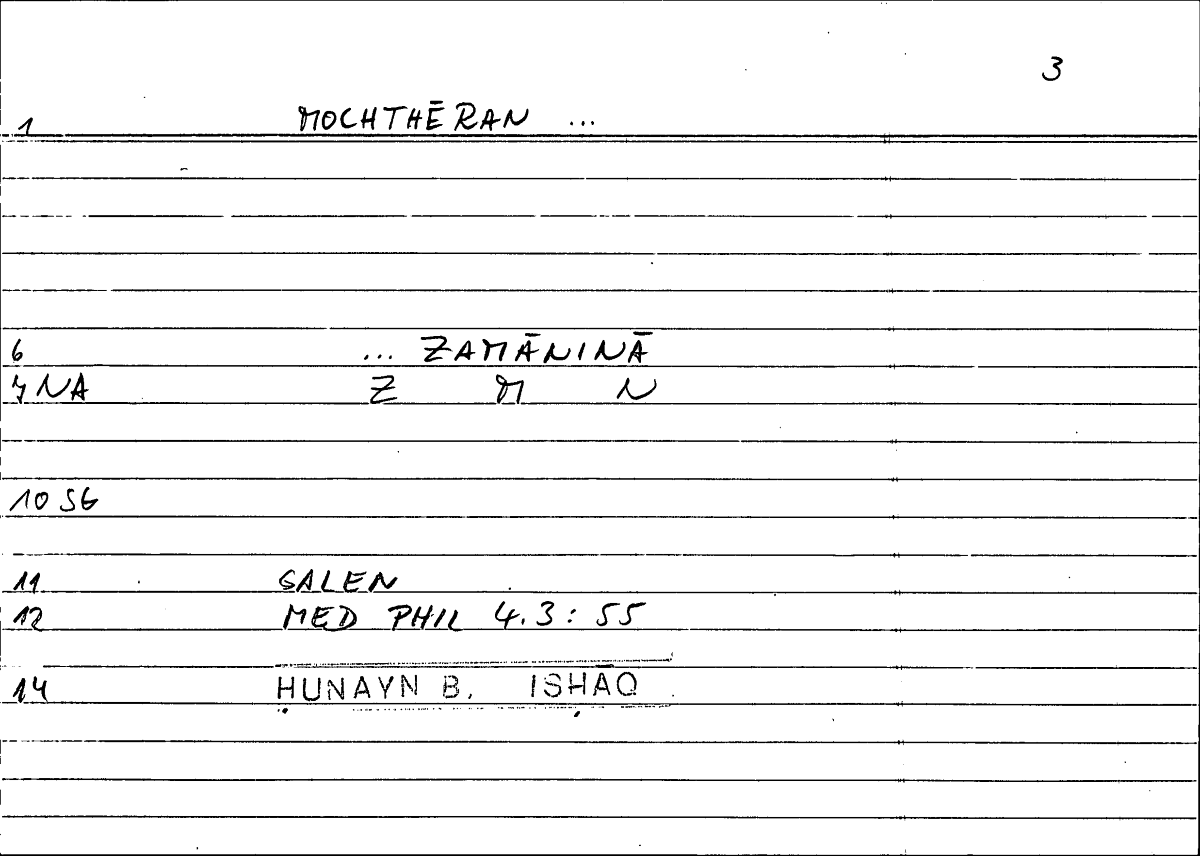 3
1 MOCHTHĒRAN ...
6 ... ZAMĀNINĀ
7 NA Z M N
10 SG
11 GALEN
12 MED PHIL 4.3: 55
14 ḤUNAYN B. ISḤĀQ